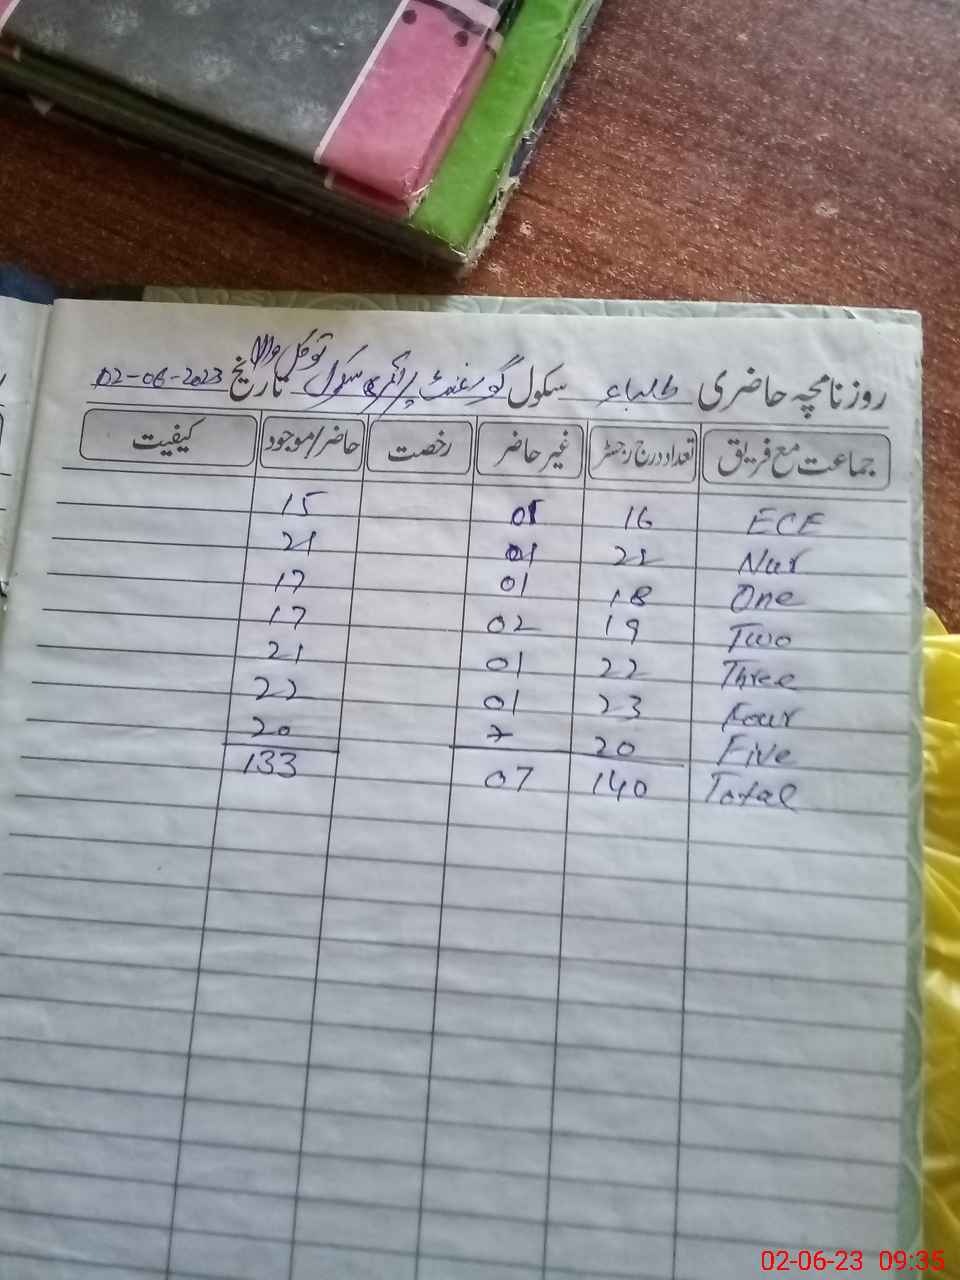 روزنامچہ حاضری طلباء سکول گورنمنٹ پرائمری سکول توکل والا تاریخ 02-06-2023
جماعت مع فریق تعداد درج رجسٹر غیر حاضر رخصت حاضر/موجود کیفیت
ECE 16 01 15
Nur 22 01 21
One 18 01 17
Two 19 02 17
Three 22 01 21
Four 23 01 22
Five 20 20
Total 140 07 133
02-06-23 09:35